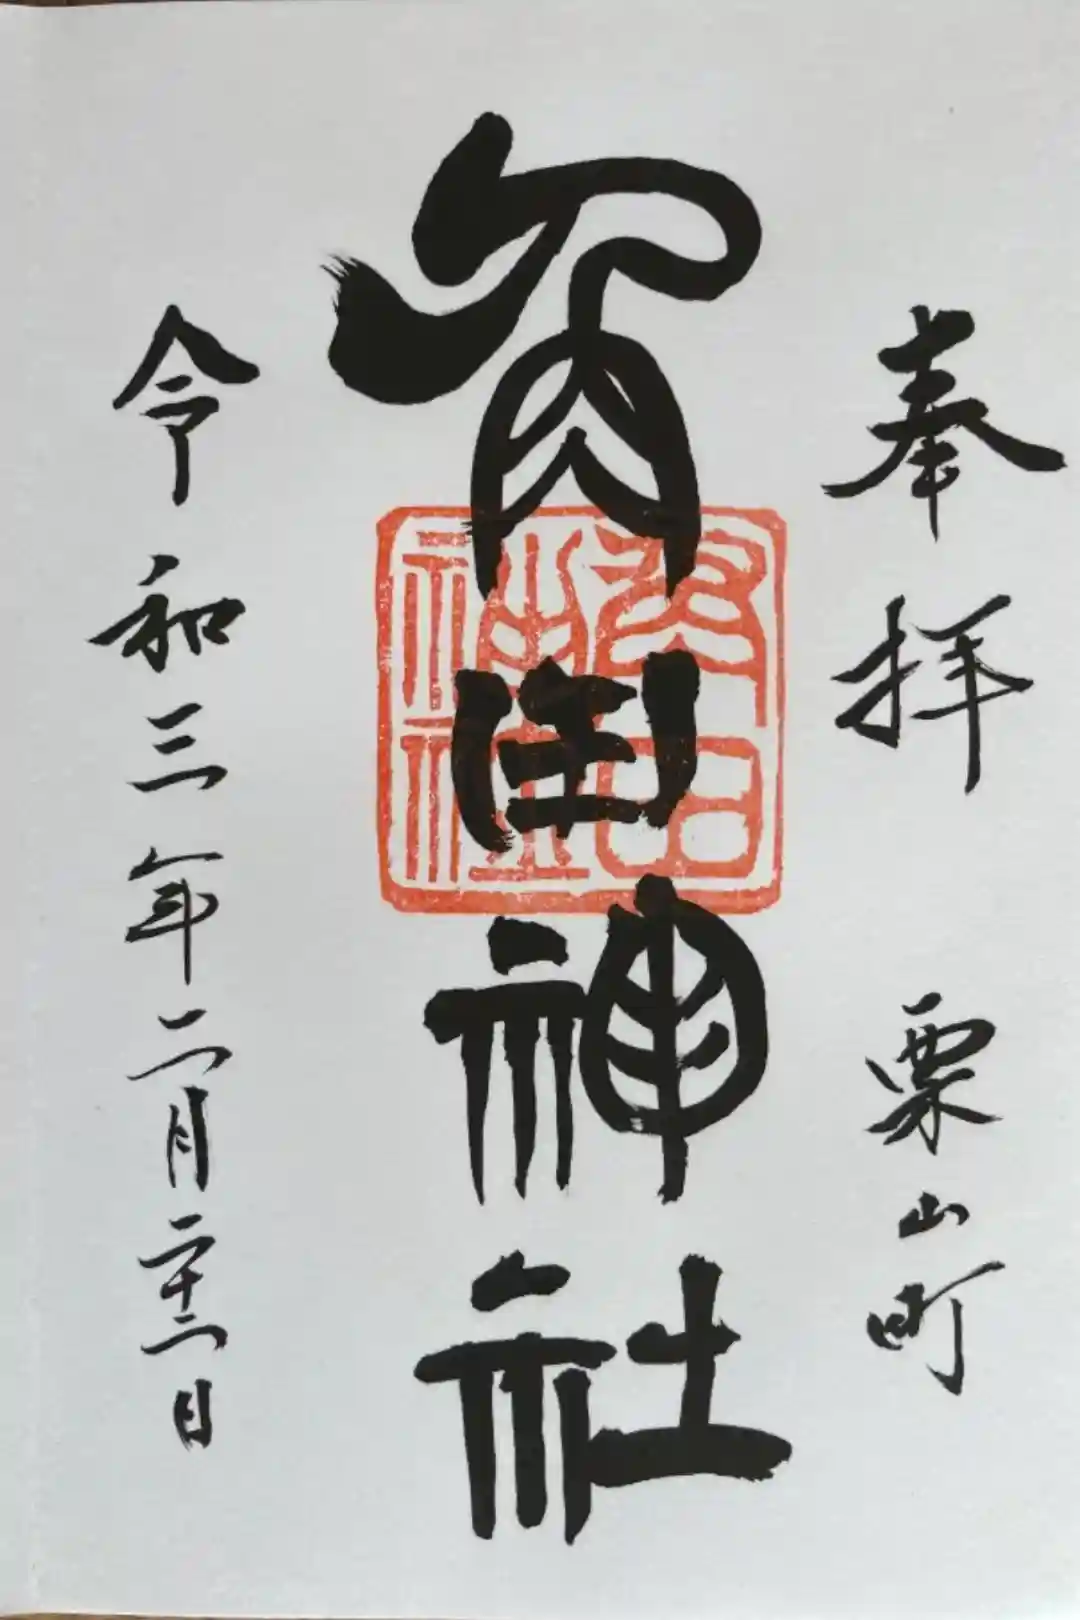 奉拝 栗山町
角田神社
角田
神社
令和三年二月二十二日